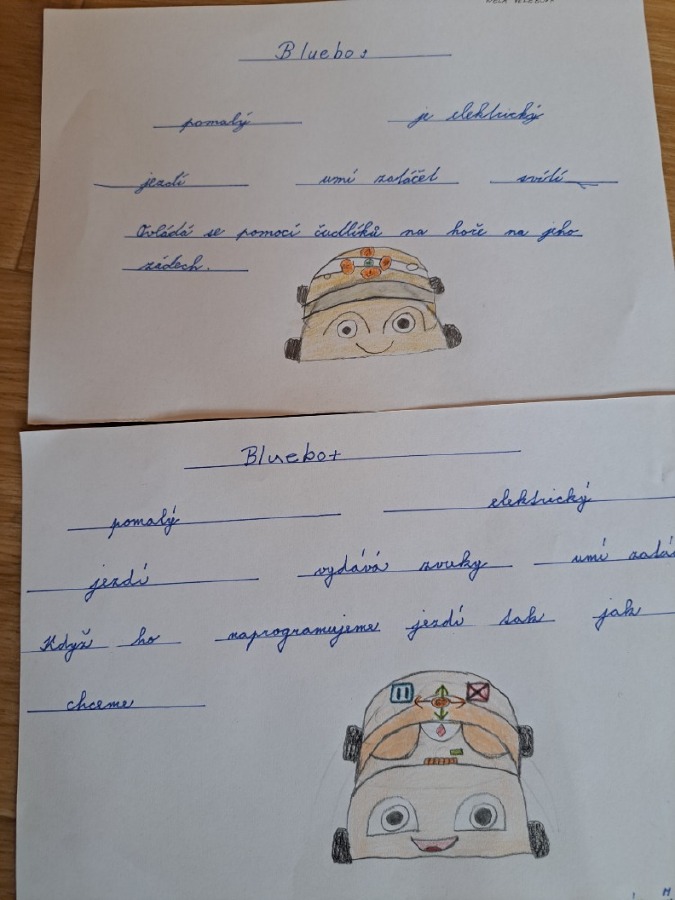 Bluebot
pomalý je elektrický
jezdí umí zatáčet svítí
Ovládá se pomocí čudlíků na hoře na jeho
zádech.
Bluebot
pomalý elektrický
jezdí vydává zvuky umí zatá
Když ho naprogramujeme jezdí tak jak
chceme